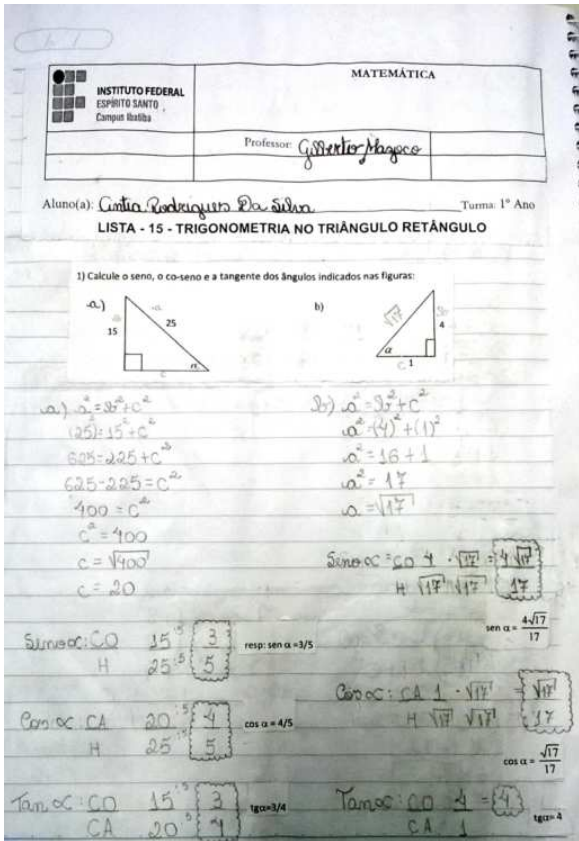 INSTITUTO FEDERAL
ESPÍRITO SANTO
Campus Ibatiba
MATEMÁTICA
Professor: Gilberto Mazoco
Aluno(a): Cintia Rodrigues Da Silva Turma: 1º Ano
LISTA - 15 - TRIGONOMETRIA NO TRIÂNGULO RETÂNGULO
1) Calcule o seno, o co-seno e a tangente dos ângulos indicados nas figuras:
a)
15
25
a
c
α
b)
√17
4
α
c 1
a) a² = b² + c²
(25)² = 15² + c²
625 = 225 + c²
625 - 225 = c²
400 = c²
c² = 400
c = √400
c = 20
Seno α: CO 15 :5 3
H 25 :5 5
resp: sen α =3/5
Cos α: CA 20 :5 4
H 25 5
cos α = 4/5
Tan α: CO 15 :5 3
CA 20 :5 4
tgα=3/4
b) a² = b² + c²
a² = (4)² + (1)²
a² = 16 + 1
a² = 17
a = √17
Seno α = CO 4 · √17 = 4√17
H √17 √17 17
sen α = 4√17
17
Cos α: CA 1 · √17 = √17
H √17 √17 17
cos α = √17
17
Tan α: CO 4 = 4
CA 1
tgα= 4